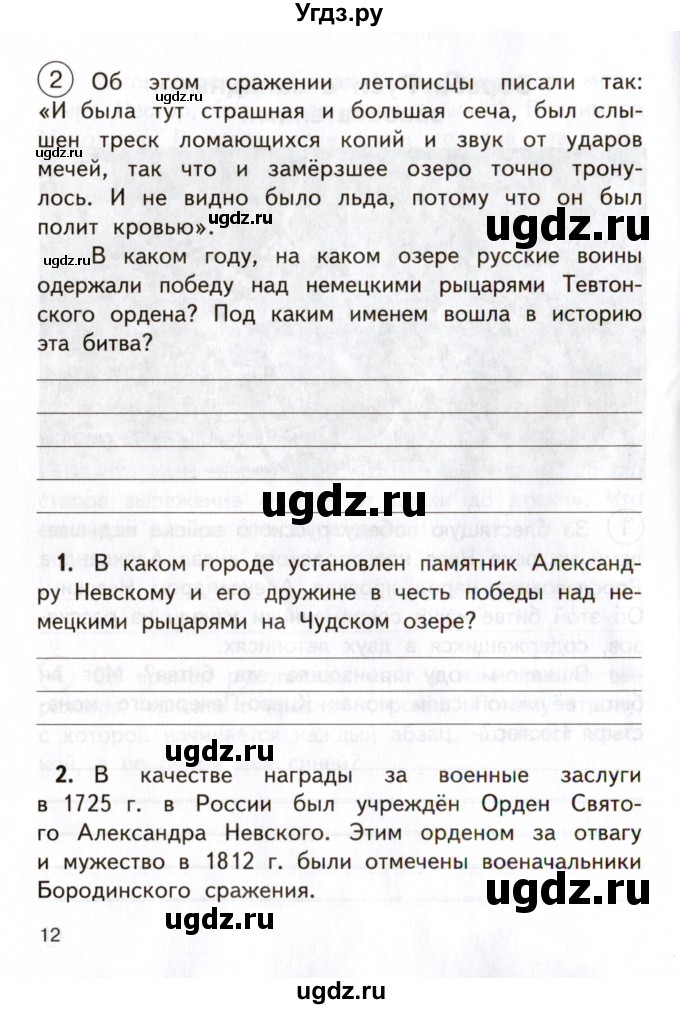 Угдз.ру
② Об этом сражении летописцы писали так:
«И была тут страшная и большая сеча, был слы-
шен треск ломающихся копий и звук от ударов
мечей, так что и замёрзшее озеро точно трону-
лось. И не видно было льда, потому что он был
полит кровью».
В каком году, на каком озере русские воины
одержали победу над немецкими рыцарями Тевтон-
ского ордена? Под каким именем вошла в историю
эта битва?
1. В каком городе установлен памятник Александ-
ру Невскому и его дружине в честь победы над не-
мецкими рыцарями на Чудском озере?
2. В качестве награды за военные заслуги
в 1725 г. в России был учреждён Орден Свято-
го Александра Невского. Этим орденом за отвагу
и мужество в 1812 г. были отмечены военачальники
Бородинского сражения.
12
ugdz.ru
ugdz.ru
ugdz.ru
ugdz.ru
ugdz.ru
ugdz.ru
ugdz.ru
ugdz.ru
ugdz.ru
ugdz.ru
ugdz.ru